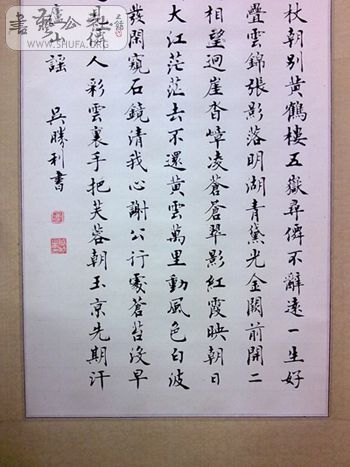 杖朝別黃鶴樓五嶽尋僊不辭遠一生好
疊雲錦張影落明湖青黛光金闕前開二
相望迴崖沓嶂凌蒼蒼翠影紅霞映朝日
大江茫茫去不還黃雲萬里動風色白波
發閑窺石鏡清我心謝公行處蒼苔沒早
人彩雲裏手把芙蓉朝玉京先期汗
山謠 吳勝利書
WWW.SHUFA.ORG